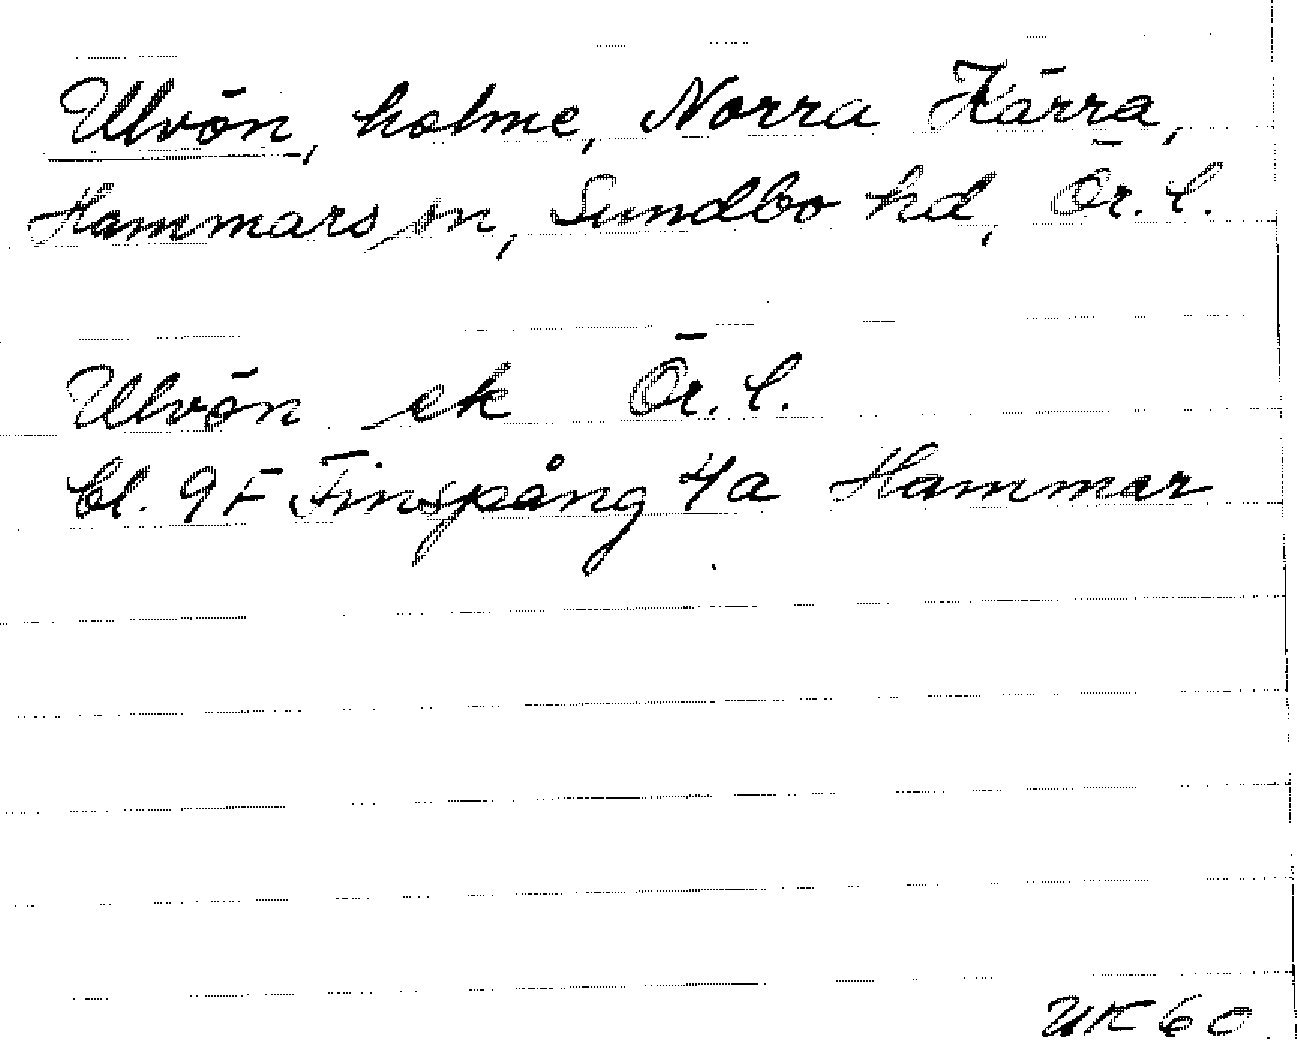 Ulvön, holme, Norra Kärra,
Hammars sn, Sundbo hd, Ör. l.
Ulvön ek Ör. l.
bl. 9F Finspång 4a Hammar
UK60